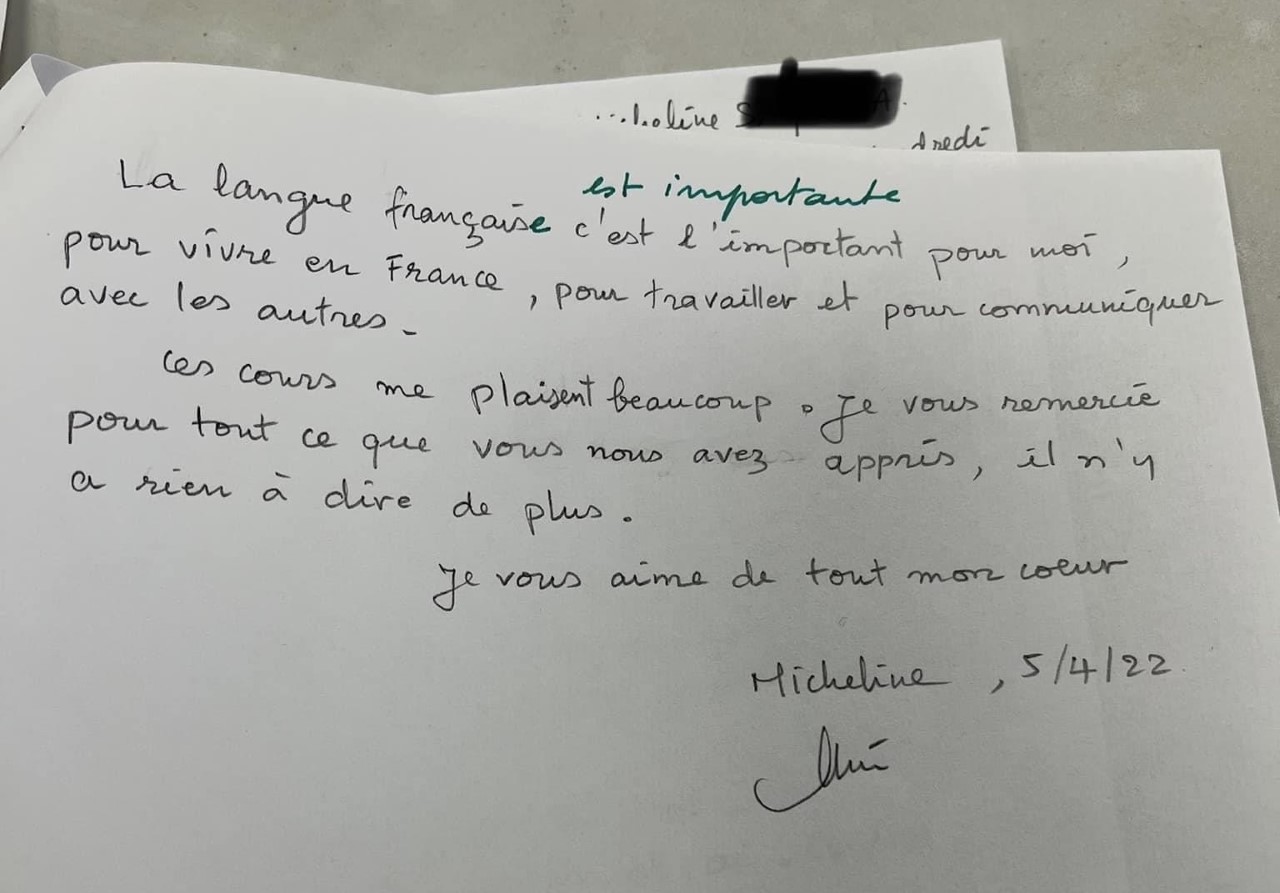 est importante
La langue française c'est l'important pour moi,
pour vivre en France, pour travailler et pour communiquer
avec les autres.
Ces cours me plaisent beaucoup. Je vous remercie
pour tout ce que vous nous avez appris, il n'y
a rien à dire de plus.
Je vous aime de tout mon coeur
Micheline, 5/4/22